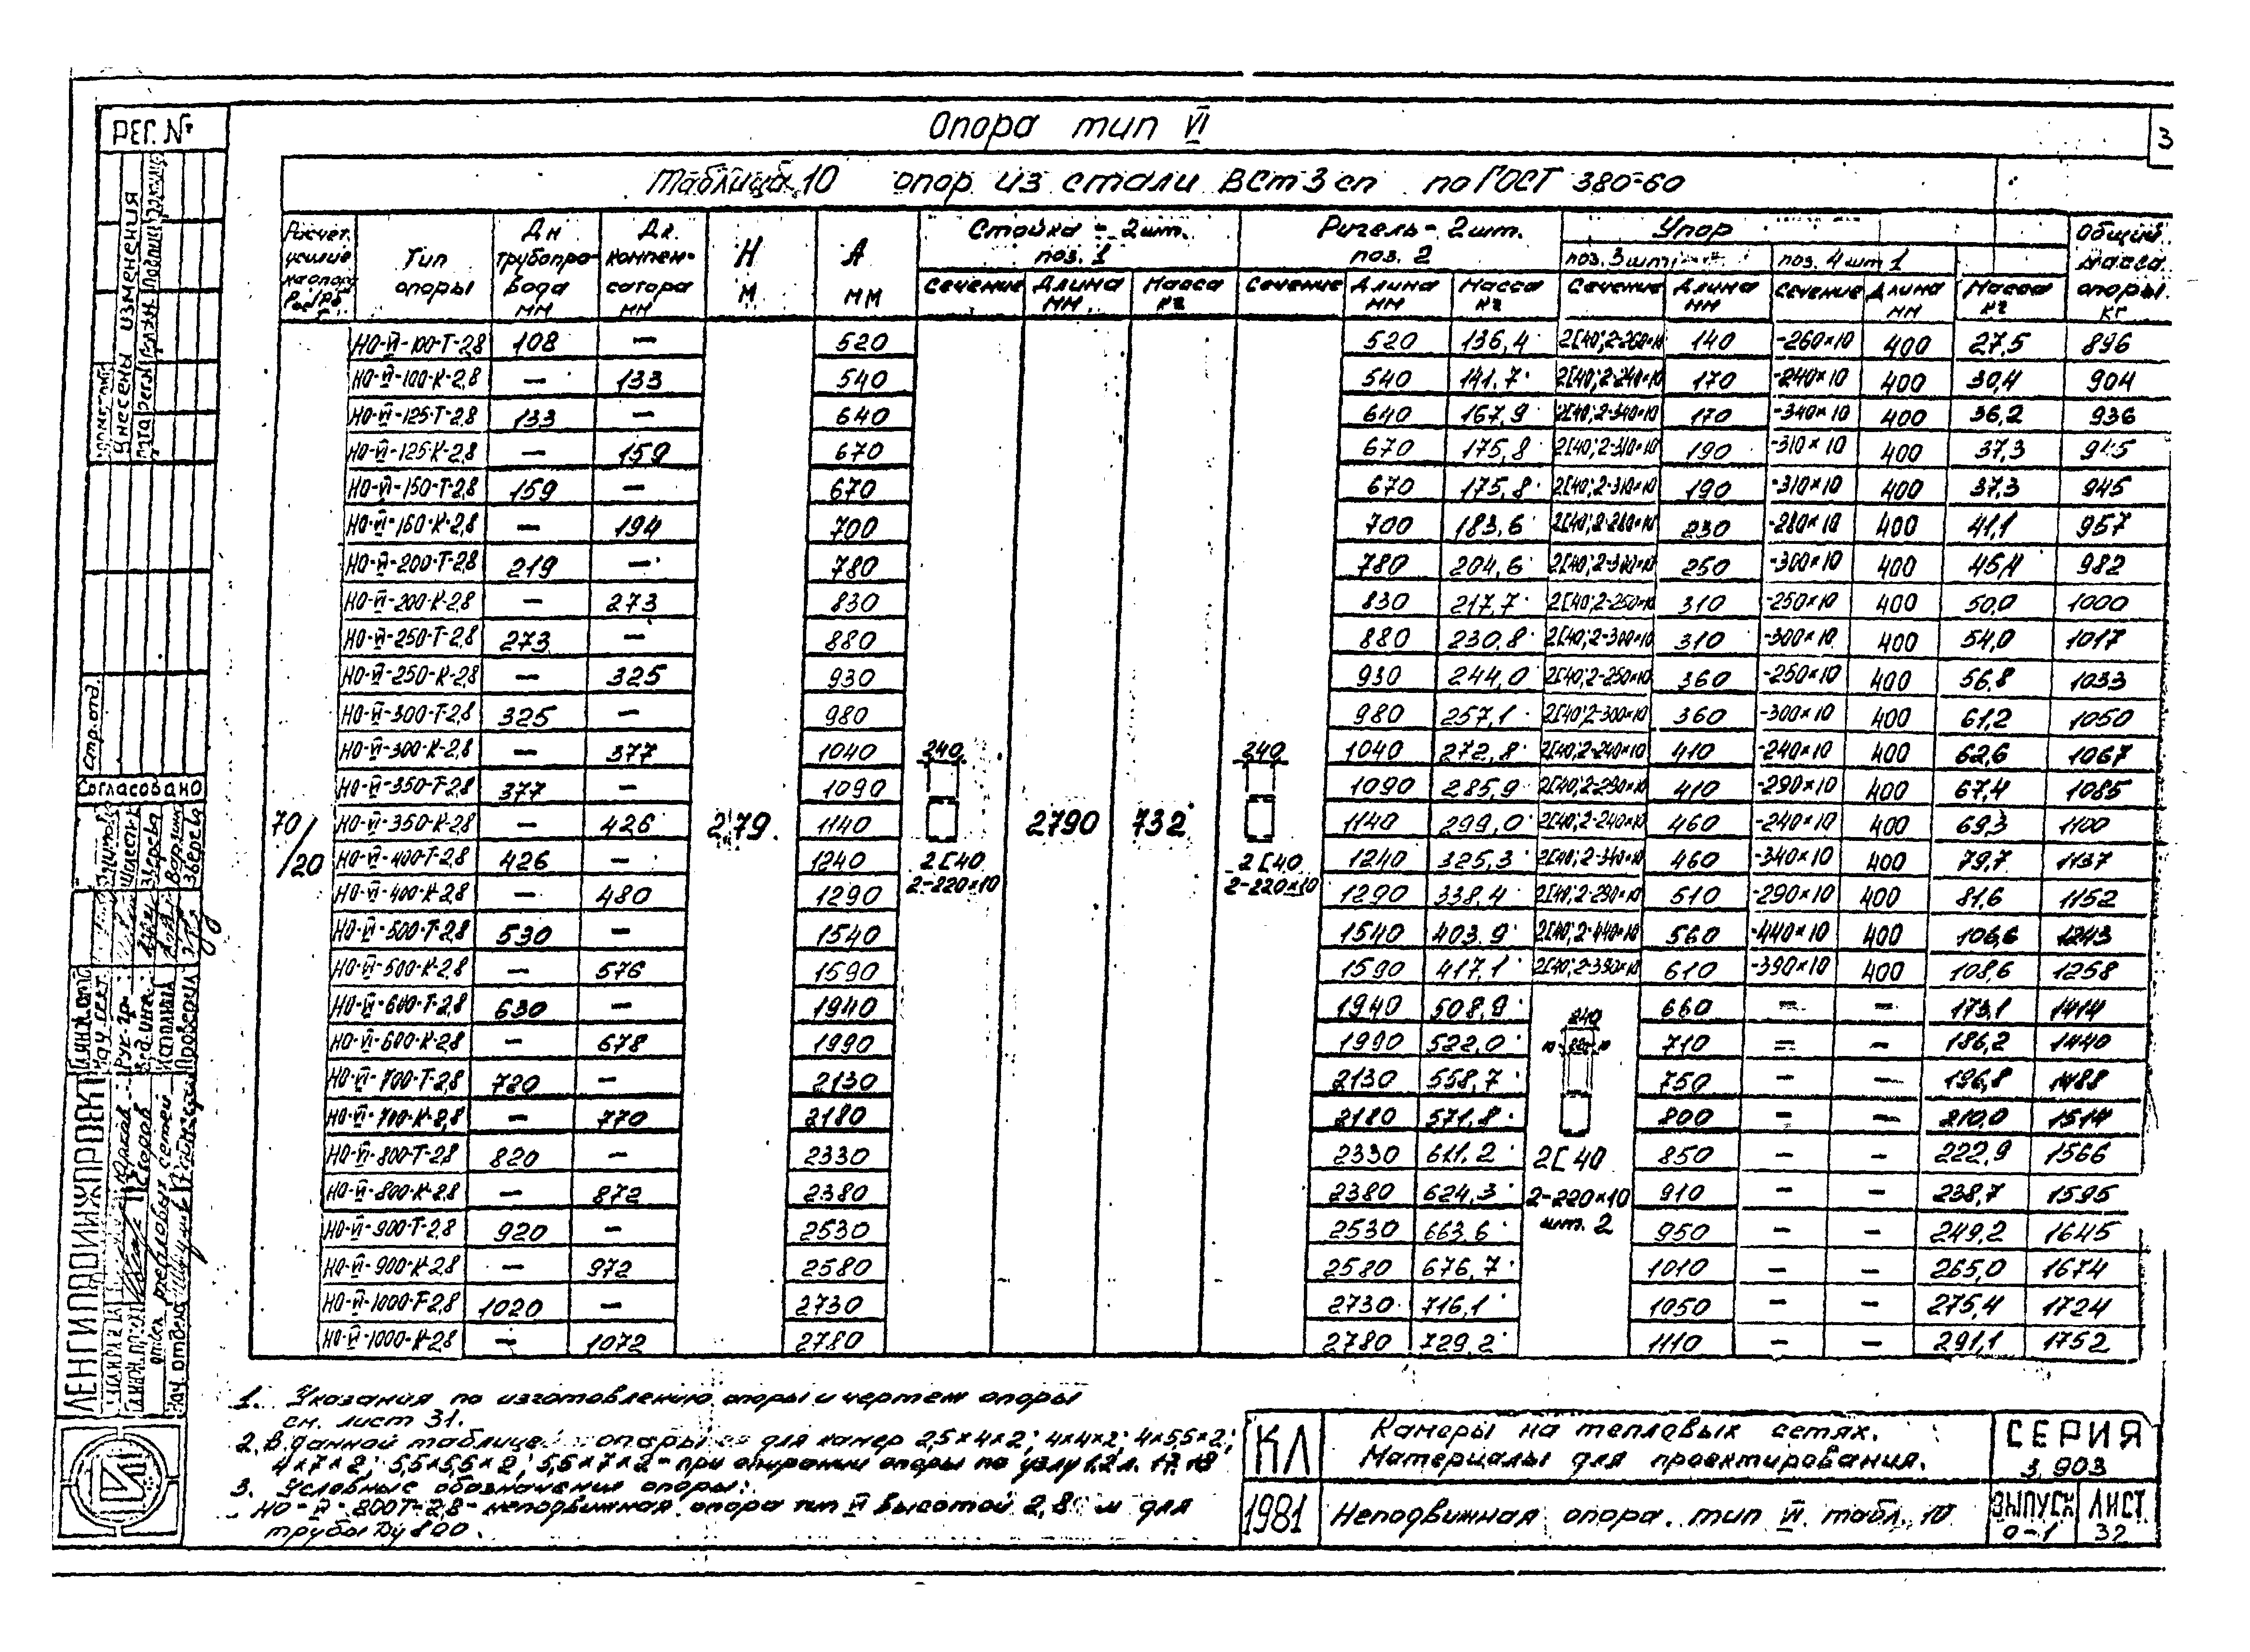 Опора тип VI
3
РЕГ. №
Таблица 10 опор из стали ВСт3сп по ГОСТ 380-60
Расчет. усилие на опору
Тип опоры
Дн трубопровода мм
Дк компенсатора мм
Н м
А мм
Стойка - 2шт. поз. 1
Ригель - 2шт. поз. 2
Упор
поз. 3 шт.
поз. 4 шт 1
Общий масса опоры кг
Сечение Длина мм Масса кг Сечение Длина мм Масса кг Сечение Длина мм Сечение Длина мм Масса кг
70/20
2,79
240
2[40
2-220×10
2790
732
240
2[40
2-220×10
НО-VI-100-Т-2,8 108 — 520 520 136,4 2[40; 2-260×10 140 -260×10 400 27,5 896
НО-VI-100-К-2,8 — 133 540 540 141,7 2[40; 2-240×10 170 -240×10 400 30,4 904
НО-VI-125-Т-2,8 133 — 640 640 167,9 2[40; 2-340×10 170 -340×10 400 36,2 936
НО-VI-125-К-2,8 — 159 670 670 175,8 2[40; 2-310×10 190 -310×10 400 37,3 945
НО-VI-150-Т-2,8 159 — 670 670 175,8 2[40; 2-310×10 190 -310×10 400 37,3 945
НО-VI-150-К-2,8 — 194 700 700 183,6 2[40; 2-280×10 230 -280×10 400 41,1 957
НО-VI-200-Т-2,8 219 — 780 780 204,6 2[40; 2-300×10 250 -300×10 400 45,4 982
НО-VI-200-К-2,8 — 273 830 830 217,7 2[40; 2-250×10 310 -250×10 400 50,0 1000
НО-VI-250-Т-2,8 273 — 880 880 230,8 2[40; 2-300×10 310 -300×10 400 54,0 1017
НО-VI-250-К-2,8 — 325 930 930 244,0 2[40; 2-250×10 360 -250×10 400 56,8 1033
НО-VI-300-Т-2,8 325 — 980 980 257,1 2[40; 2-300×10 360 -300×10 400 61,2 1050
НО-VI-300-К-2,8 — 377 1040 1040 272,8 2[40; 2-240×10 410 -240×10 400 62,6 1067
НО-VI-350-Т-2,8 377 — 1090 1090 285,9 2[40; 2-290×10 410 -290×10 400 67,4 1085
НО-VI-350-К-2,8 — 426 1140 1140 299,0 2[40; 2-240×10 460 -240×10 400 69,3 1100
НО-VI-400-Т-2,8 426 — 1240 1240 325,3 2[40; 2-340×10 460 -340×10 400 79,7 1137
НО-VI-400-К-2,8 — 480 1290 1290 338,4 2[40; 2-290×10 510 -290×10 400 81,6 1152
НО-VI-500-Т-2,8 530 — 1540 1540 403,9 2[40; 2-440×10 560 -440×10 400 106,6 1243
НО-VI-500-К-2,8 — 576 1590 1590 417,1 2[40; 2-390×10 610 -390×10 400 108,6 1258
НО-VI-600-Т-2,8 630 — 1940 1940 508,9 660 — — 173,1 1414
НО-VI-600-К-2,8 — 678 1990 1990 522,0 710 — — 186,2 1440
НО-VI-700-Т-2,8 720 — 2130 2130 558,7 750 — — 196,8 1488
НО-VI-700-К-2,8 — 770 2180 2180 571,8 800 — — 210,0 1514
НО-VI-800-Т-2,8 820 — 2330 2330 611,2 850 — — 222,9 1566
НО-VI-800-К-2,8 — 872 2380 2380 624,3 910 — — 238,7 1595
НО-VI-900-Т-2,8 920 — 2530 2530 663,6 950 — — 249,2 1645
НО-VI-900-К-2,8 — 972 2580 2580 676,7 1010 — — 265,0 1674
НО-VI-1000-Т-2,8 1020 — 2730 2730 716,1 1050 — — 275,4 1724
НО-VI-1000-К-2,8 — 1072 2780 2780 729,2 1110 — — 291,1 1752
240
2[40
2-220×10
шт. 2
1. Указания по изготовлению опоры и чертеж опоры
см. лист 31.
2. В данной таблице опоры для камер 2,5×4×2; 4×4×2; 4×5,5×2;
4×7×2; 5,5×5,5×2; 5,5×7×2 - при опирании опоры по узлу 1,2 л. 17, 18
3. Условные обозначения опоры:
НО-VI-800Т-2,8 - неподвижная опора тип VI высотой 2,8 м для
трубы Ду 800.
КЛ
1981
Камеры на тепловых сетях.
Материалы для проектирования.
Неподвижная опора тип VI табл. 10
СЕРИЯ
3.903
ВЫПУСК
0-1
ЛИСТ
32
Внесены изменения
Стр. отд.
Согласовано
Зверева
Рук. гр.
Исполнил
Проверил
ЛЕНГИПРОИНЖПРОЕКТ